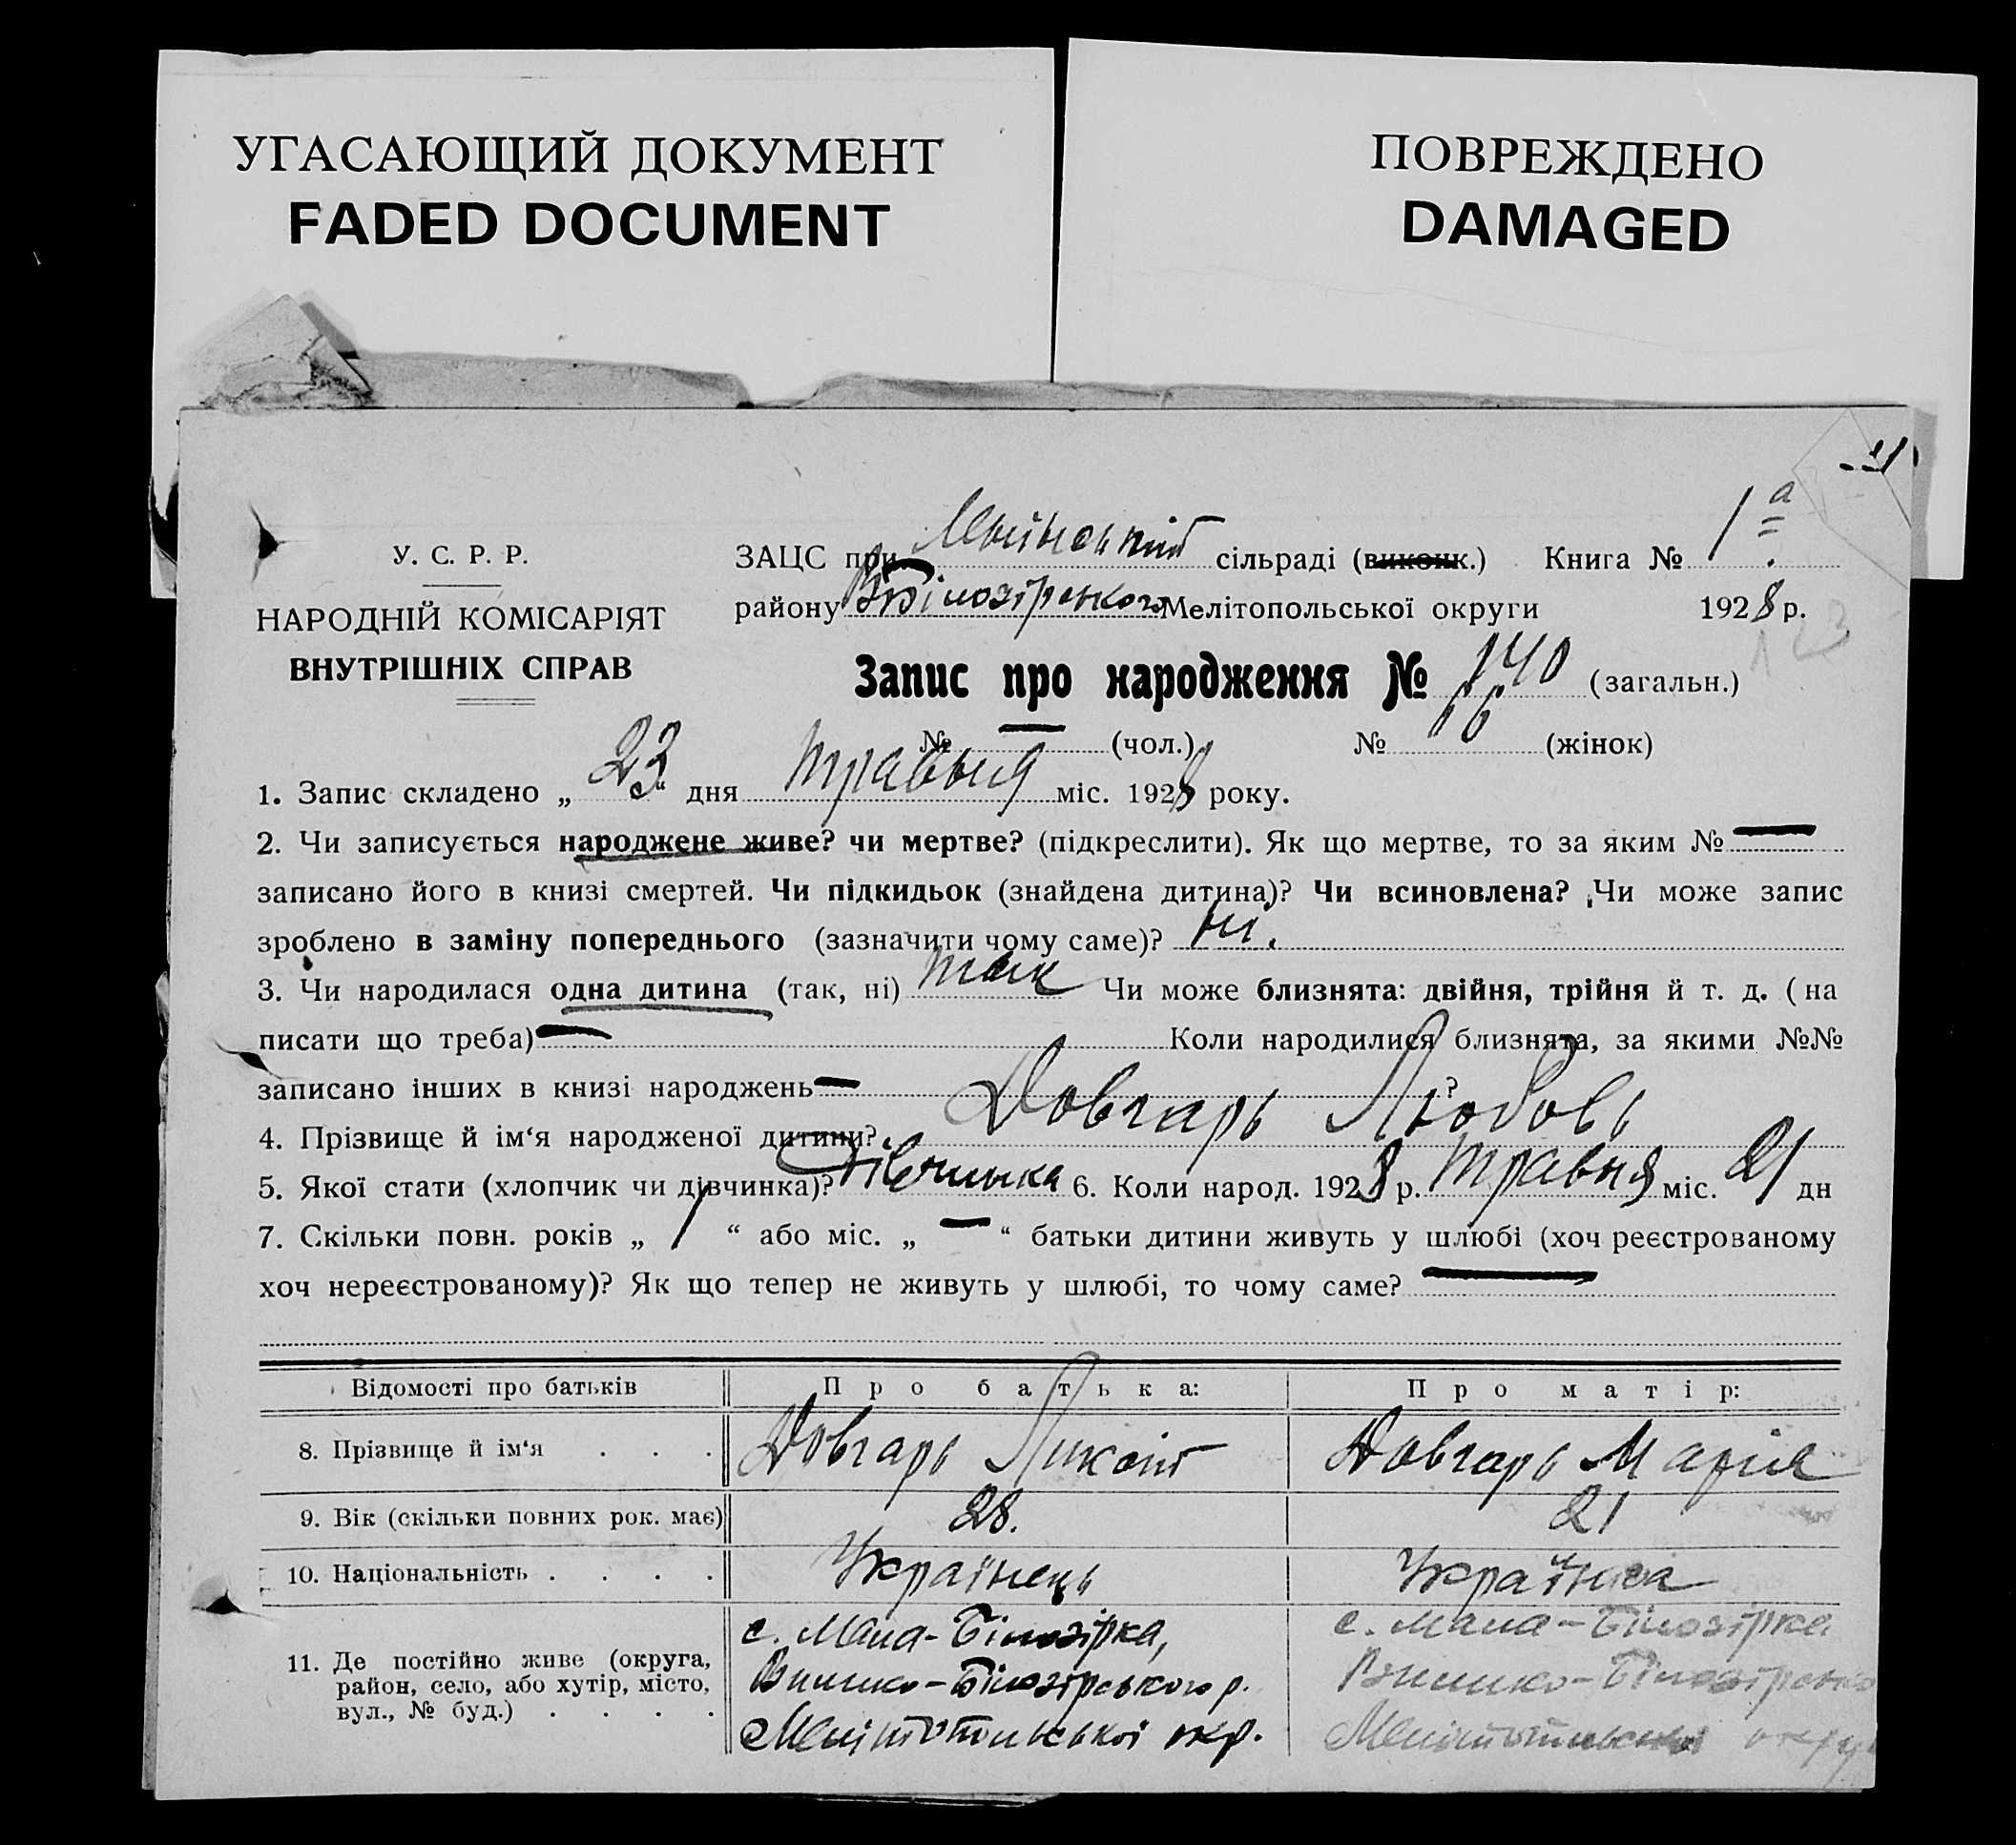 УГАСАЮЩИЙ ДОКУМЕНТ
FADED DOCUMENT
ПОВРЕЖДЕНО
DAMAGED
У. С. Р. Р.
НАРОДНІЙ КОМІСАРІЯТ
ВНУТРІШНІХ СПРАВ
ЗАЦС при сільраді (виконк.) Книга № 1а
району В Білозірського Мелітопольської округи 1928 р.
Запис про народження № 140 (загальн.)
№ — (чол.) № 66 (жінок)
1. Запис складено „ 23 “ дня травня міс. 1928 року.
2. Чи записується народжене живе? чи мертве? (підкреслити). Як що мертве, то за яким № —
записано його в книзі смертей. Чи підкидьок (знайдена дитина)? Чи всиновлена? Чи може запис
зроблено в заміну попереднього (зазначити чому саме)? ні.
3. Чи народилася одна дитина (так, ні) так Чи може близнята: двійня, трійня й т. д. ( на
писати що треба) — Коли народилися близнята, за якими №№
записано інших в книзі народжень — ?
4. Прізвище й ім‘я народженої дитини? Довгарь Любовь
5. Якої стати (хлопчик чи дівчинка)? Дівчинка 6. Коли народ. 1928 р. травня міс. 21 дн
7. Скільки повн. років „ 1 “ або міс. „ — “ батьки дитини живуть у шлюбі (хоч реєстрованому
хоч нереєстрованому)? Як що тепер не живуть у шлюбі, то чому саме? —
Відомості про батьків Про батька: Про матір:
8. Прізвище й ім‘я . . . Довгарь Никон Довгарь Марія
9. Вік (скільки повних рок. має) 28. 21
10. Національність . . . . Українець Українка
11. Де постійно живе (округа, район, село, або хутір, місто, вул., № буд.) . . . .
с. Мала-Білозірка,
Велико-Білозірського р.
Мелітопольської окр.
с. Мала-Білозірка
Велико-Білозірсько
Мелітопольської окру